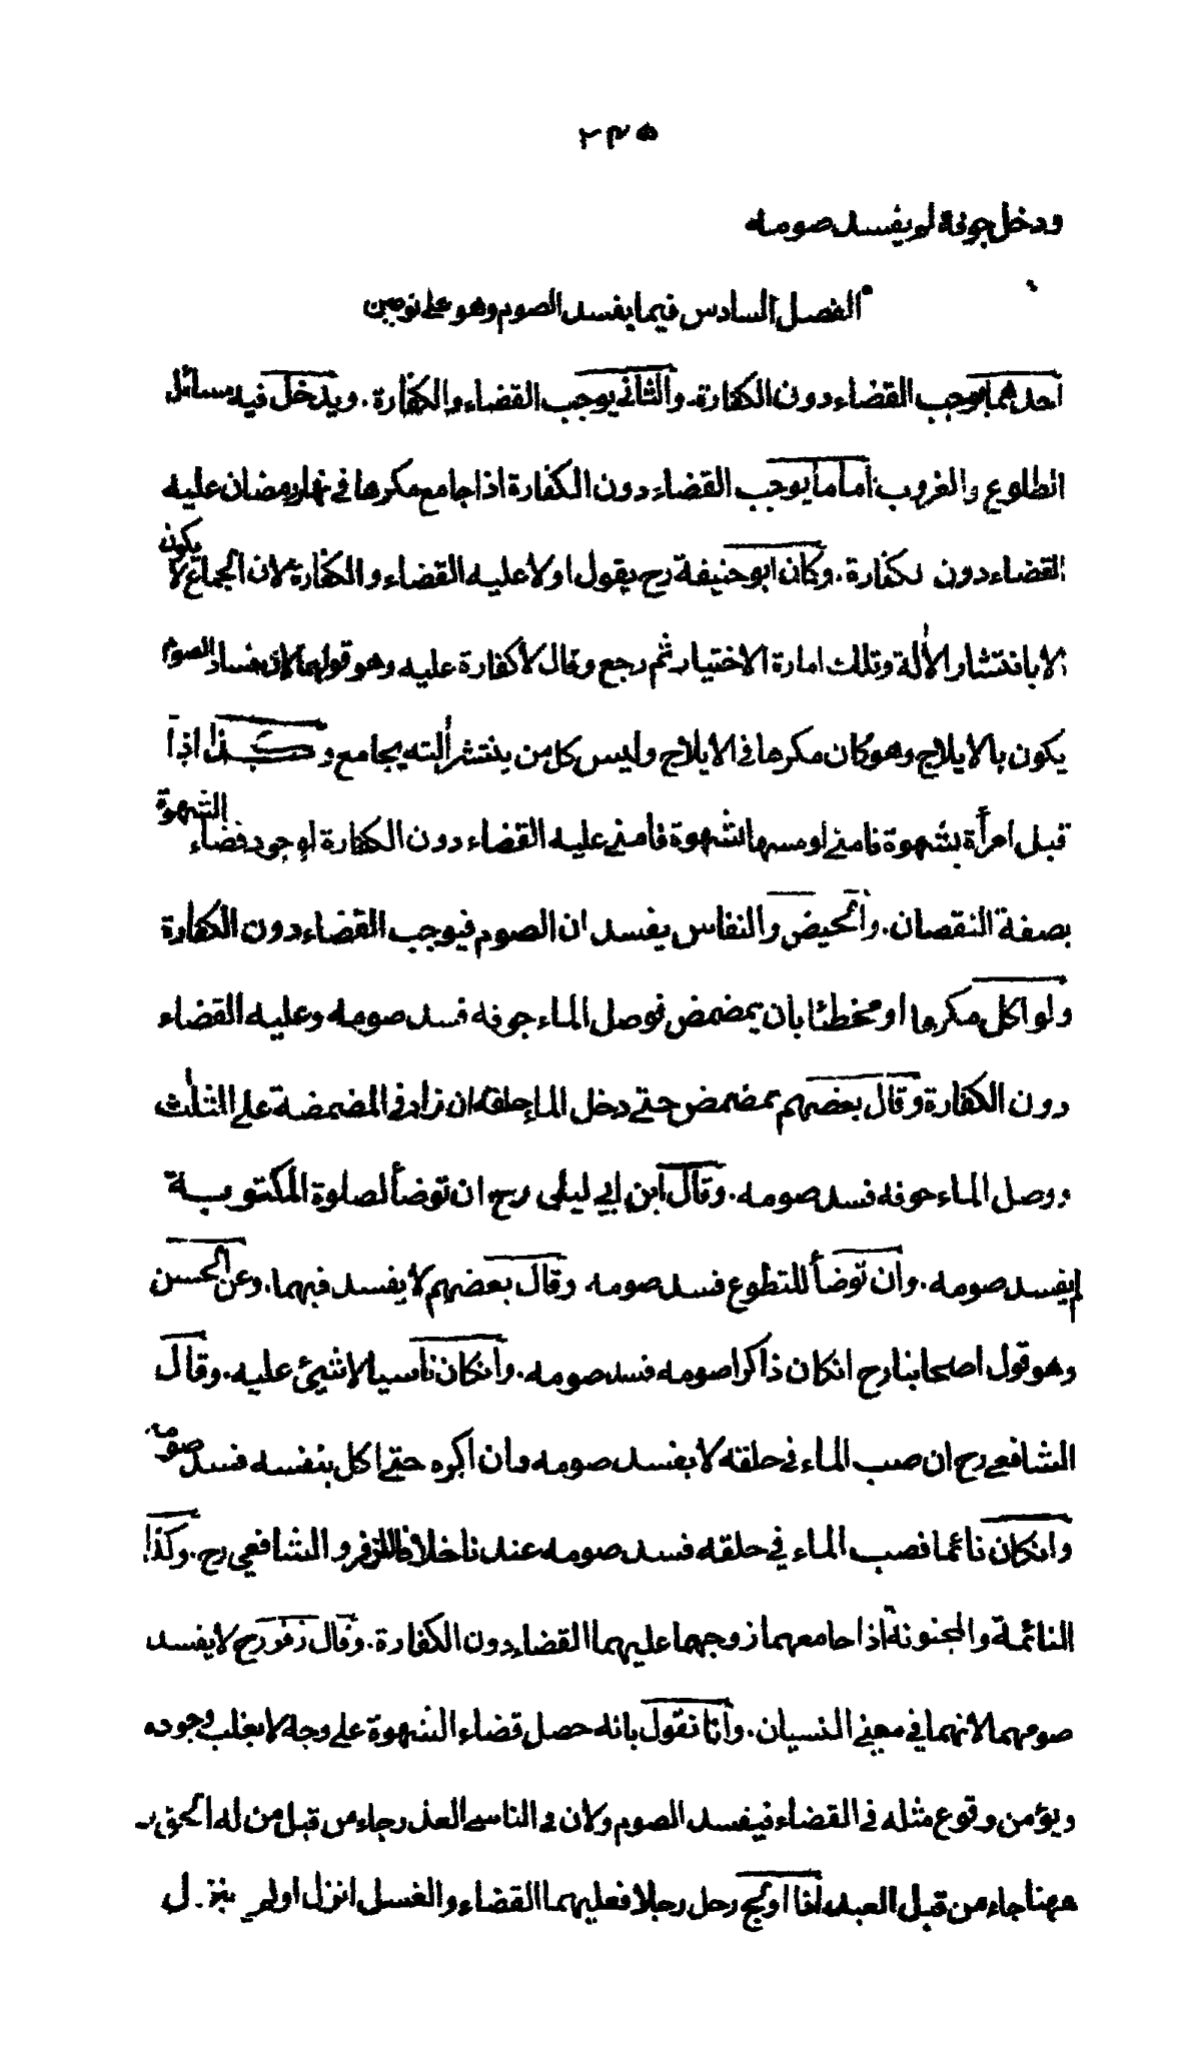 ٢٣٥
ودخل جوفه لم يفسد صومه
الفصل السادس فيما يفسد الصوم وهو على نوعين
احدهما يوجب القضاء دون الكفارة. والثاني يوجب القضاء والكفارة. ويدخل فيه مسائل
الطلوع والغروب اما ما يوجب القضاء دون الكفارة اذا جامع مكرها في نهار رمضان عليه
القضاء دون لكفارة. وكان ابو حنيفة رح يقول اولا عليه القضاء والكفارة لان الجماع لا يكون
الا بانتشار الألة وتلك امارة الاختيار ثم رجع وقال لا كفارة عليه وهو قولهما لان فساد الصوم
يكون بالايلاج وهو كان مكرها في الايلاج وليس كل من ينتشر ألته يجامع وكذا اذا
قبل امرأة بشهوة فامنى او مسها بشهوة فامنى عليه القضاء دون الكفارة لوجود قضاء الشهوة
بصفة النقصان. والحيض والنفاس يفسد ان الصوم فيوجب القضاء دون الكفارة
ولو اكل مكرها او مخطئا بان تمضمض فوصل الماء جوفه فسد صومه وعليه القضاء
دون الكفارة وقال بعضهم تمضمض حتى دخل الماء حلقه ان زاد في المضمضة على الثلث
ووصل الماء جوفه فسد صومه. وقال ابن ابي ليلى رح ان توضأ لصلوة المكتوبة
لم يفسد صومه. وان توضأ للتطوع فسد صومه وقال بعضهم لا يفسد فيهما. وعن الحسن
وهو قول اصحابنا رح انكان ذاكرا صومه فسد صومه. وانكان ناسيا لا شيئ عليه. وقال
الشافعي رح ان صب الماء في حلقه لا يفسد صومه وان اكره حتى اكل بنفسه فسد صومه
وانكان نائما فصب الماء في حلقه فسد صومه عندنا خلافا لزفر والشافعي رح. وكذا
النائمة والمجنونة اذا جامعهما زوجهما عليهما القضاء دون الكفارة. وقال زفر رح لا يفسد
صومهما لانهما في معنى النسيان. وانا نقول بانه حصل قضاء الشهوة على وجه لا يغلب وجوده
ويؤمن وقوع مثله في القضاء فيفسد الصوم ولان في الناسى العذر جاء من قبل من له الحق
ههنا جاء من قبل العبد اذا اولج رجل رجلا فعليهما القضاء والغسل انزل او لم ينزل